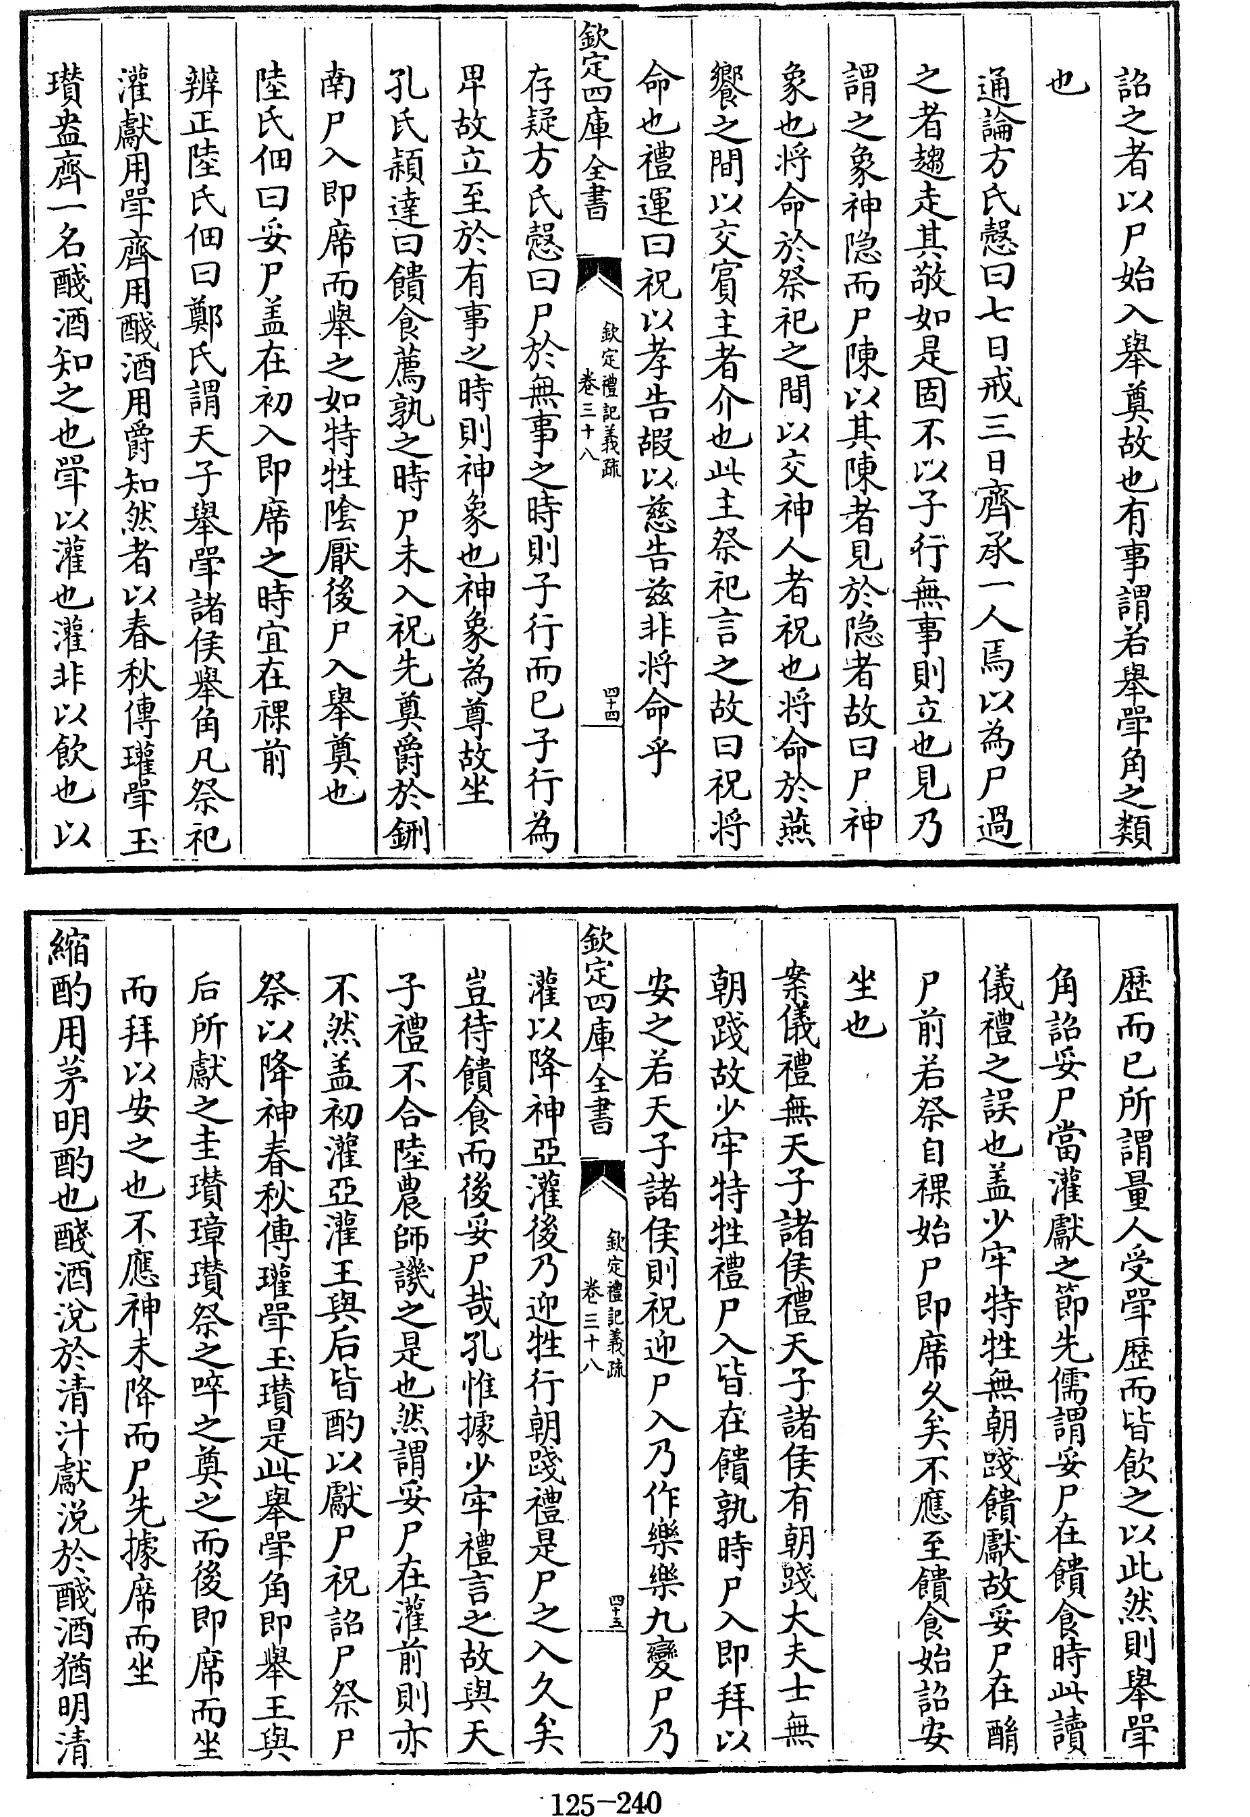 詔之者以尸始入舉奠故也有事謂若舉斝角之類
也
通論方氏慤曰七日戒三日齊承一人焉以為尸過
之者趨走其敬如是固不以子行無事則立也見乃
謂之象神隐而尸陳以其陳者見於隐者故曰尸神
象也将命於祭祀之間以交神人者祝也将命於燕
饗之間以交賓主者介也此主祭祀言之故曰祝将
命也禮運曰祝以孝告嘏以慈告兹非将命乎
欽定四庫全書
欽定禮記義疏
卷三十八
四十四
存疑方氏慤曰尸於無事之時則子行而已子行為
卑故立至於有事之時則神象也神象為尊故坐
孔氏穎達曰饋食薦孰之時尸未入祝先奠爵於鉶
南尸入即席而舉之如特牲陰厭後尸入舉奠也
陸氏佃曰妥尸盖在初入即席之時宜在祼前
辨正陸氏佃曰鄭氏謂天子舉斝諸侯舉角凡祭祀
灌獻用斝齊用醆酒用爵知然者以春秋傳瓘斝玉
瓚盎齊一名醆酒知之也斝以灌也灌非以飲也以
歴而已所謂量人受斝歴而皆飲之以此然則舉斝
角詔妥尸當灌獻之節先儒謂妥尸在饋食時此讀
儀禮之誤也盖少牢特牲無朝踐饋獻故妥尸在酳
尸前若祭自祼始尸即席久矣不應至饋食始詔安
坐也
案儀禮無天子諸侯禮天子諸侯有朝踐大夫士無
朝踐故少牢特牲禮尸入皆在饋孰時尸入即拜以
安之若天子諸侯則祝迎尸入乃作樂樂九變尸乃
欽定四庫全書
欽定禮記義疏
卷三十八
四十五
灌以降神亞灌後乃迎牲行朝踐禮是尸之入久矣
豈待饋食而後妥尸哉孔惟據少牢禮言之故與天
子禮不合陸農師譏之是也然謂妥尸在灌前則亦
不然盖初灌亞灌王與后皆酌以獻尸祝詔尸祭尸
祭以降神春秋傳瓘斝玉瓚是此舉斝角即舉王與
后所獻之圭瓚璋瓚祭之啐之奠之而後即席而坐
而拜以安之也不應神未降而尸先據席而坐
縮酌用茅明酌也醆酒涚於清汁獻涚於醆酒猶明清
125-240